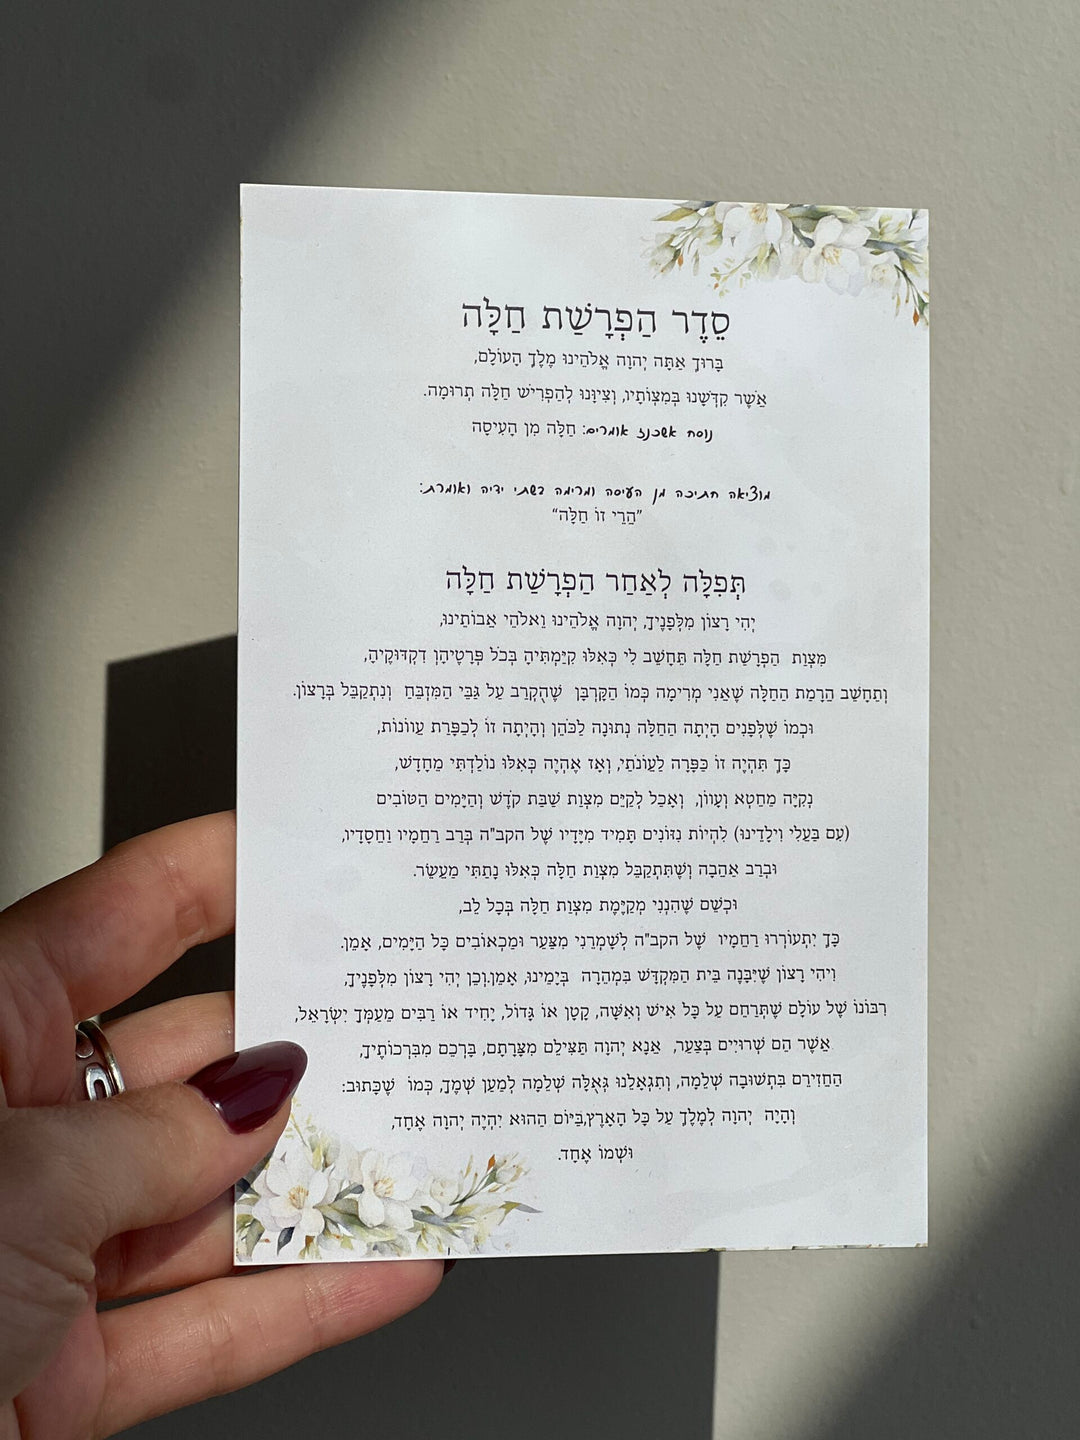 סֵדֶר הַפְרָשַׁת חַלָּה
בָּרוּךְ אַתָּה יְהוָה אֱלֹהֵינוּ מֶלֶךְ הָעוֹלָם,
אֲשֶׁר קִדְּשָׁנוּ בְּמִצְוֹתָיו, וְצִיוָּנוּ לְהַפְרִישׁ חַלָּה תְרוּמָה.
נוסח אשכנז אומרים: חַלָּה מִן הָעִיסָה
מוציאה חתיכה מן העיסה ומרימה בשתי ידיה ואומרת:
"הֲרֵי זוֹ חַלָּה"
תְּפִלָּה לְאַחַר הַפְרָשַׁת חַלָּה
יְהִי רָצוֹן מִלְּפָנֶיךָ, יְהוָה אֱלֹהֵינוּ וֵאלֹהֵי אֲבוֹתֵינוּ,
מִצְוַת הַפְרָשַׁת חַלָּה תֵּחָשֵׁב לִי כְּאִלּוּ קִיַּמְתִּיהָ בְּכֹל פְּרָטֶיהָן דִקְדּוּקֶיהָ,
וְתֵחָשֵׁב הֲרָמַת הַחַלָּה שֶׁאֲנִי מְרִימָה כְּמוֹ הַקָּרְבָּן שֶׁהֻקְרַב עַל גַּבֵּי הַמִּזְבֵּחַ וְנִתְקַבֵּל בְּרָצוֹן.
וּכְמוֹ שֶׁלְּפָנִים הָיְתָה הַחַלָּה נְתוּנָה לַכֹּהֵן וְהָיְתָה זוֹ לְכַפָּרַת עֲווֹנוֹת,
כָּךְ תִּהְיֶה זוֹ כַּפָּרָה לַעֲוֹנֹתַי, וְאָז אֶהְיֶה כְּאִלּוּ נוֹלַדְתִּי מֵחָדָשׁ,
נְקִיָּה מֵחֵטְא וְעָווֹן, וְאֻכַל לְקַיֵּם מִצְוַת שַׁבַּת קֹדֶשׁ וְהַיָּמִים הַטּוֹבִים
(עִם בַּעֲלִי וִילָדֵינוּ) לִהְיוֹת נִזּוֹנִים תָּמִיד מִיָּדָיו שֶׁל הקב"ה בְּרֹב רַחֲמָיו וַחֲסָדָיו,
וּבְרֹב אַהֲבָה וְשֶׁתִּתְקַבֵּל מִצְוַת חַלָּה כְּאִלּוּ נָתַתִּי מַעֲשֵׂר.
וּכְשֵׁם שֶׁהִנְנִי מְקַיֶּמֶת מִצְוַת חַלָּה בְּכָל לֵב,
כָּךְ יִתְעוֹרְרוּ רַחֲמָיו שֶׁל הקב"ה לְשָׁמְרֵנִי מִצַּעַר וּמַכְאוֹבִים כָּל הַיָּמִים, אָמֵן.
וִיהִי רָצוֹן שֶׁיִּבָּנֶה בֵּית הַמִּקְדָּשׁ בִּמְהֵרָה בְּיָמֵינוּ, אָמֵן.וְכֵן יְהִי רָצוֹן מִלְּפָנֶיךָ,
רִבּוֹנוֹ שֶׁל עוֹלָם שֶׁתְּרַחֵם עַל כָּל אִישׁ וְאִשָּׁה, קָטָן אוֹ גָּדוֹל, יָחִיד אוֹ רַבִּים מֵעַמְּךָ יִשְׂרָאֵל,
אֲשֶׁר הֵם שְׁרוּיִים בְּצַעַר, אָנָא יְהוָה תַּצִּילֵם מִצָּרָתָם, בָּרְכֵם מִבִּרְכוֹתֶיךָ,
הַחֲזִירֵם בִּתְשׁוּבָה שְׁלֵמָה, וְתִגְאָלֵנוּ גְּאֻלָּה שְׁלֵמָה לְמַעַן שְׁמֶךָ, כְּמוֹ שֶׁכָּתוּב:
וְהָיָה יְהוָה לְמֶלֶךְ עַל כָּל הָאָרֶץ,בַּיּוֹם הַהוּא יִהְיֶה יְהוָה אֶחָד,
וּשְׁמוֹ אֶחָד.